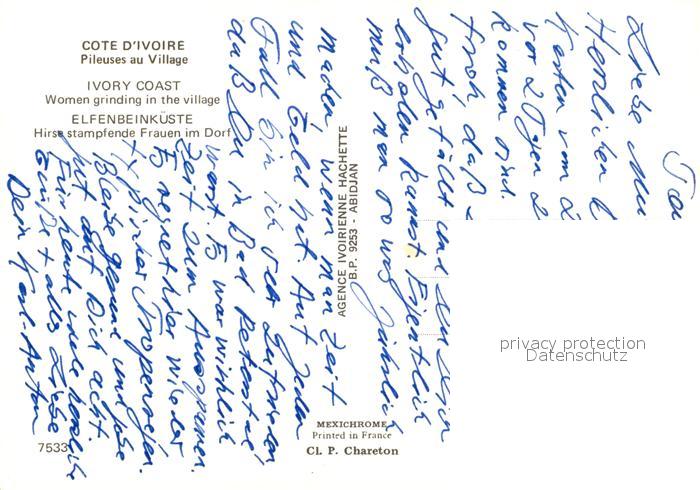 COTE D'IVOIRE
Pileuses au Village
IVORY COAST
Women grinding in the village
ELFENBEINKÜSTE
Hirse stampfende Frauen im Dorf
AGENCE IVOIRIENNE HACHETTE
B.P. 9253 - ABIDJAN
MEXICHROME
Printed in France
Cl. P. Chareton
7533
privacy protection
Datenschutz
Liebe
Herzlichen
Karten vom 2
vor 2 Tagen
kommen sind.
froh, daß
gut gefällt und
erholen kannst. Eigentlich
muß man so was jährlich
machen, wenn man Zeit
und Geld hat. Auf jeden
Fall bin ich sehr zufrieden,
daß Du in Bad
warst. Es war wirklich
Zeit zum Ausspannen.
Es regnet hier wieder
typischer Tropenregen.
Bleibe gesund und gebe
gut auf Dich acht.
Für heute viele herzliche
Grüße + alles Liebe
Dein Karl-Anton